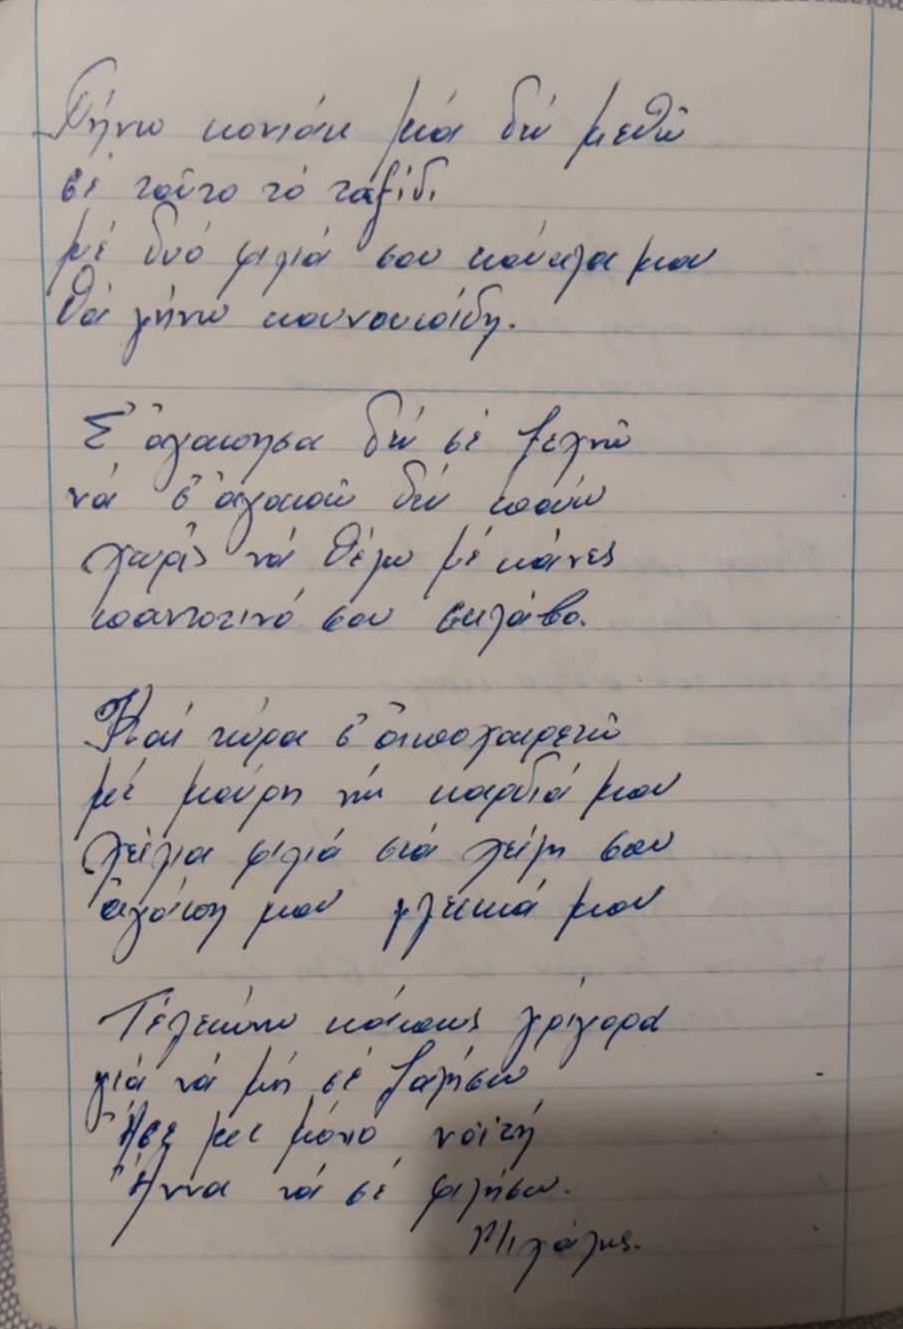 Πίνω κονιάκ μά δέν μεθῶ
σέ τοῦτο τό ταξίδι
μέ δυό φιλιά σου κούκλα μου
θά γίνω κουνουπίδι.
Σ' ἀγάπησα δέν σέ ξεχνῶ
νά σ' ἀγαπῶ δέν παύω
χωρίς νά θέλω μέ κάνες
παντοτινό σου σκλάβο.
Καί τώρα σ' ἀποχαιρετῶ
μέ μαύρη τήν καρδιά μου
χείλια φιλιά στά χείλη σου
ἀγάπη μου γλυκιά μου
Τελειώνω κάπως γρίγορα
γιά νά μή σέ ζαλήσω
μόνο
Ἄννα νά σέ φιλήσω.
Μιχάλης.